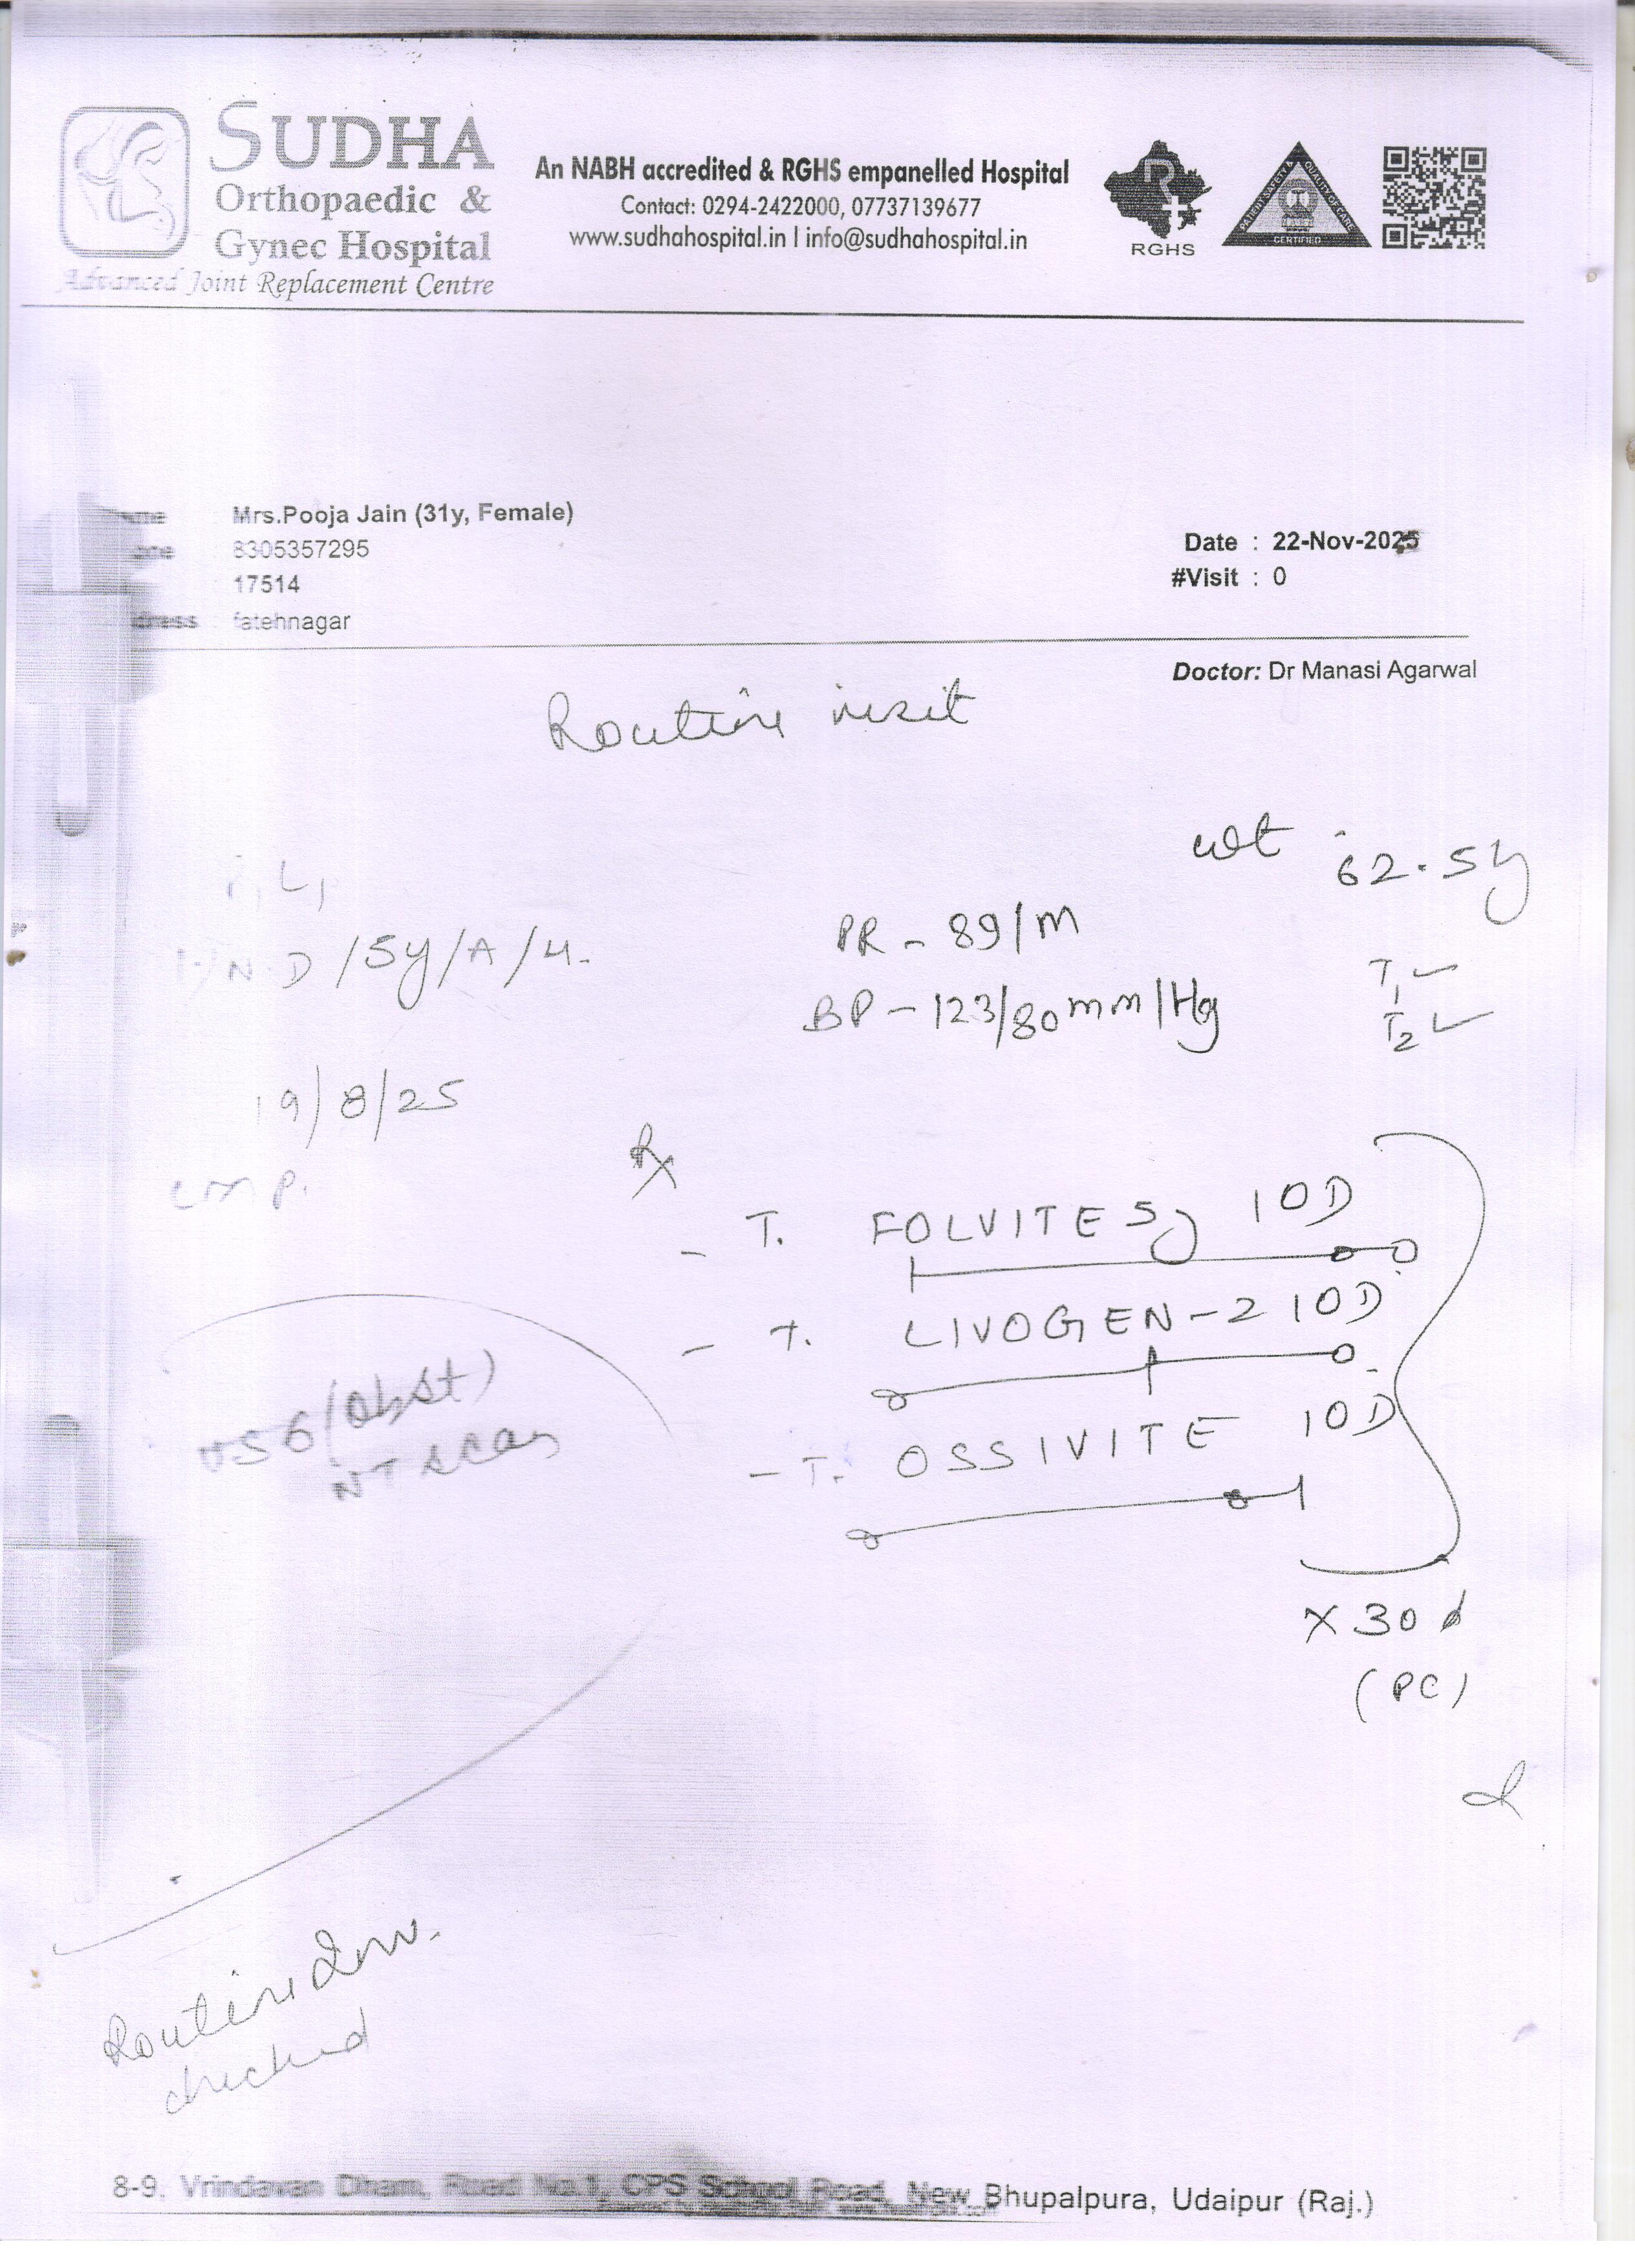 SUDHA
Orthopaedic &
Gynec Hospital
Advanced Joint Replacement Centre
An NABH accredited & RGHS empanelled Hospital
Contact: 0294-2422000, 07737139677
www.sudhahospital.in | info@sudhahospital.in
RGHS
PATIENT SAFETY & QUALITY OF CARE
CERTIFIED
Mrs.Pooja Jain (31y, Female)
8305357295
17514
fatehnagar
Date : 22-Nov-2025
#Visit : 0
Doctor: Dr Manasi Agarwal
Routine visit
wt 62.5kg
P1L1
PR - 89/m
N D /5y/A/H.
T1 ✓
BP - 123/80mm/Hg
T2 ✓
19/8/25
Rx
- T. FOLVITE 5 1OD
- T. LIVOGEN-Z 1OD
USG (Obst)
NT scan
- T. OSSIVITE 1OD
X 30 d
(PC)
Routine
checked
8-9, Vrindavan Dham, Road No.1, CPS School Road, New Bhupalpura, Udaipur (Raj.)